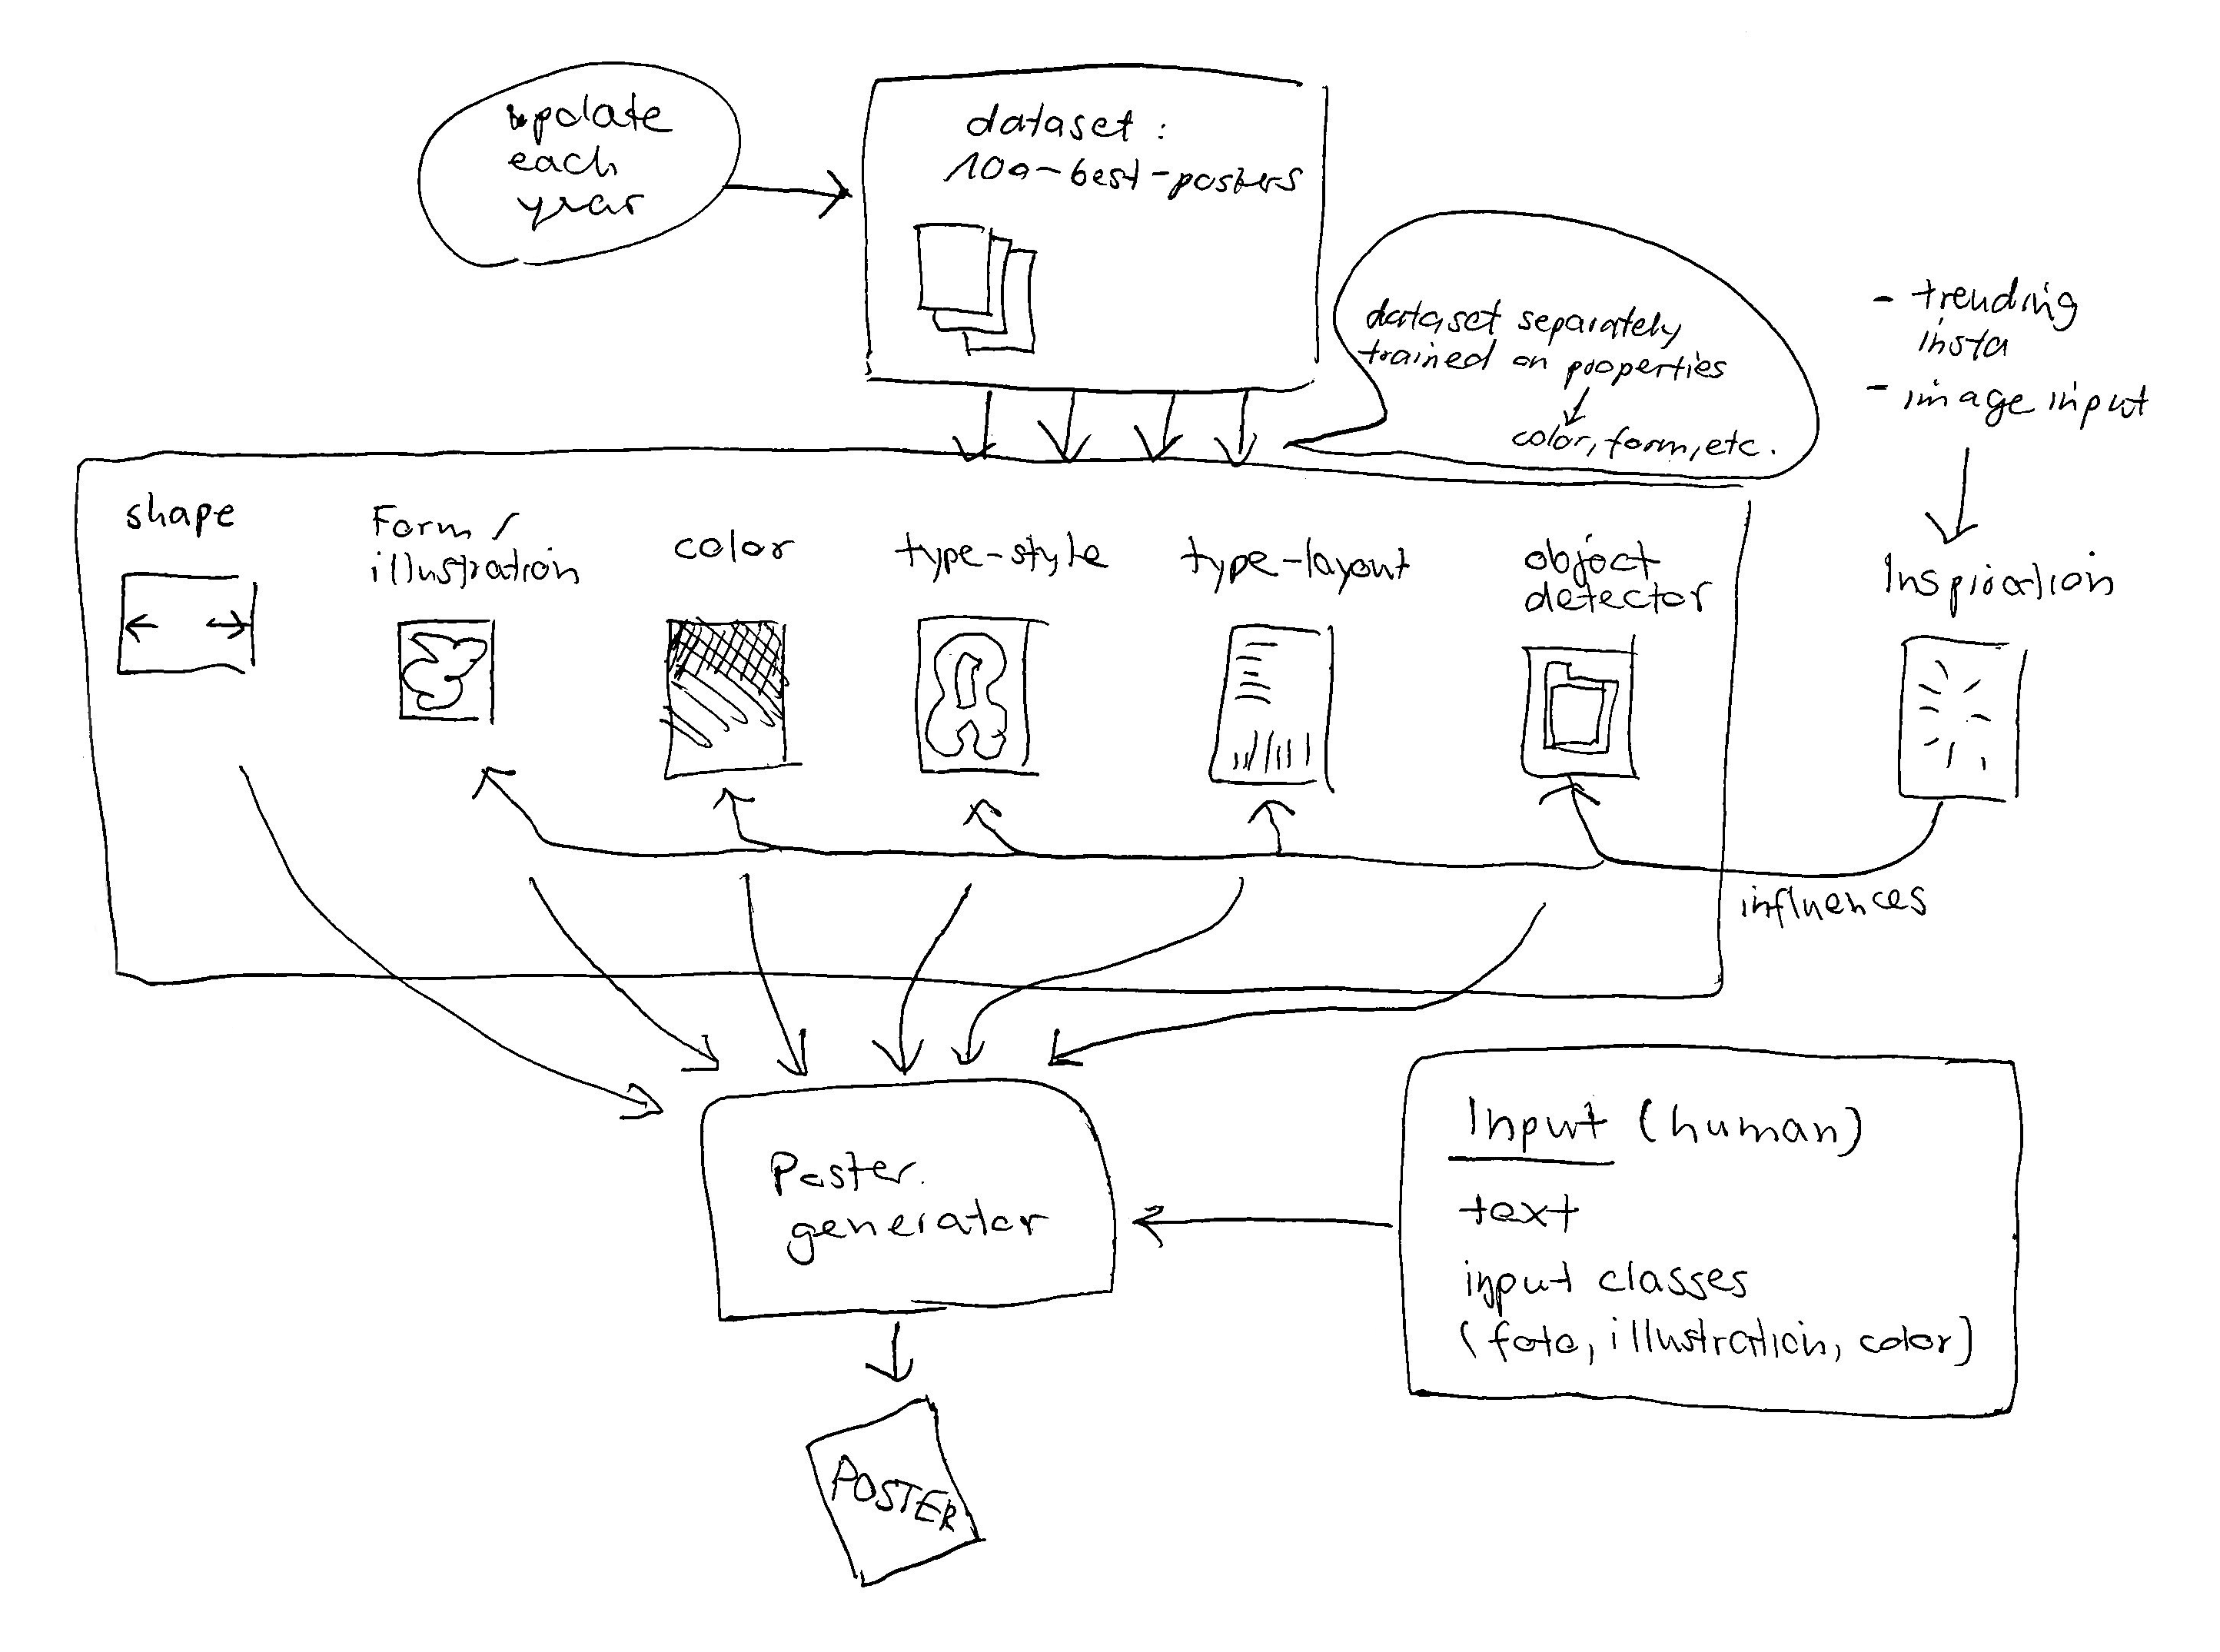 update
each
year
dataset :
100-best-posters
dataset separately
trained on properties
color, form, etc.
- trending
insta
- image input
shape
Form /
illustration
color
type-style
type-layout
object
detector
Inspiration
influences
Poster
generator
Input (human)
text
input classes
(foto, illustration, color)
POSTER